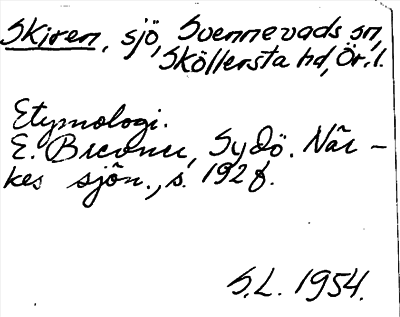 Skiren, sjö, Svennevads sn,
Sköllersta hd, Ör. l.
Etymologi.
E. Brevner, Sydö. När-
kes sjön., s. 192 f.
S.L. 1954.